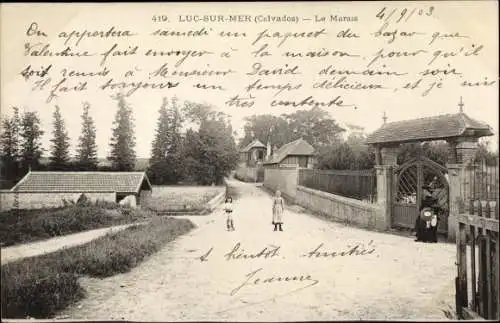 419. LUC-SUR-MER (Calvados) - Le Marais
4/9/03
On apportera samedi un paquet du bazar que
Valentine a fait envoyer à la maison, pour qu'il
soit rendu à Monsieur David demain soir
Il fait toujours un temps délicieux, et je suis
très contente
à bientôt Amitiés
Jeanne